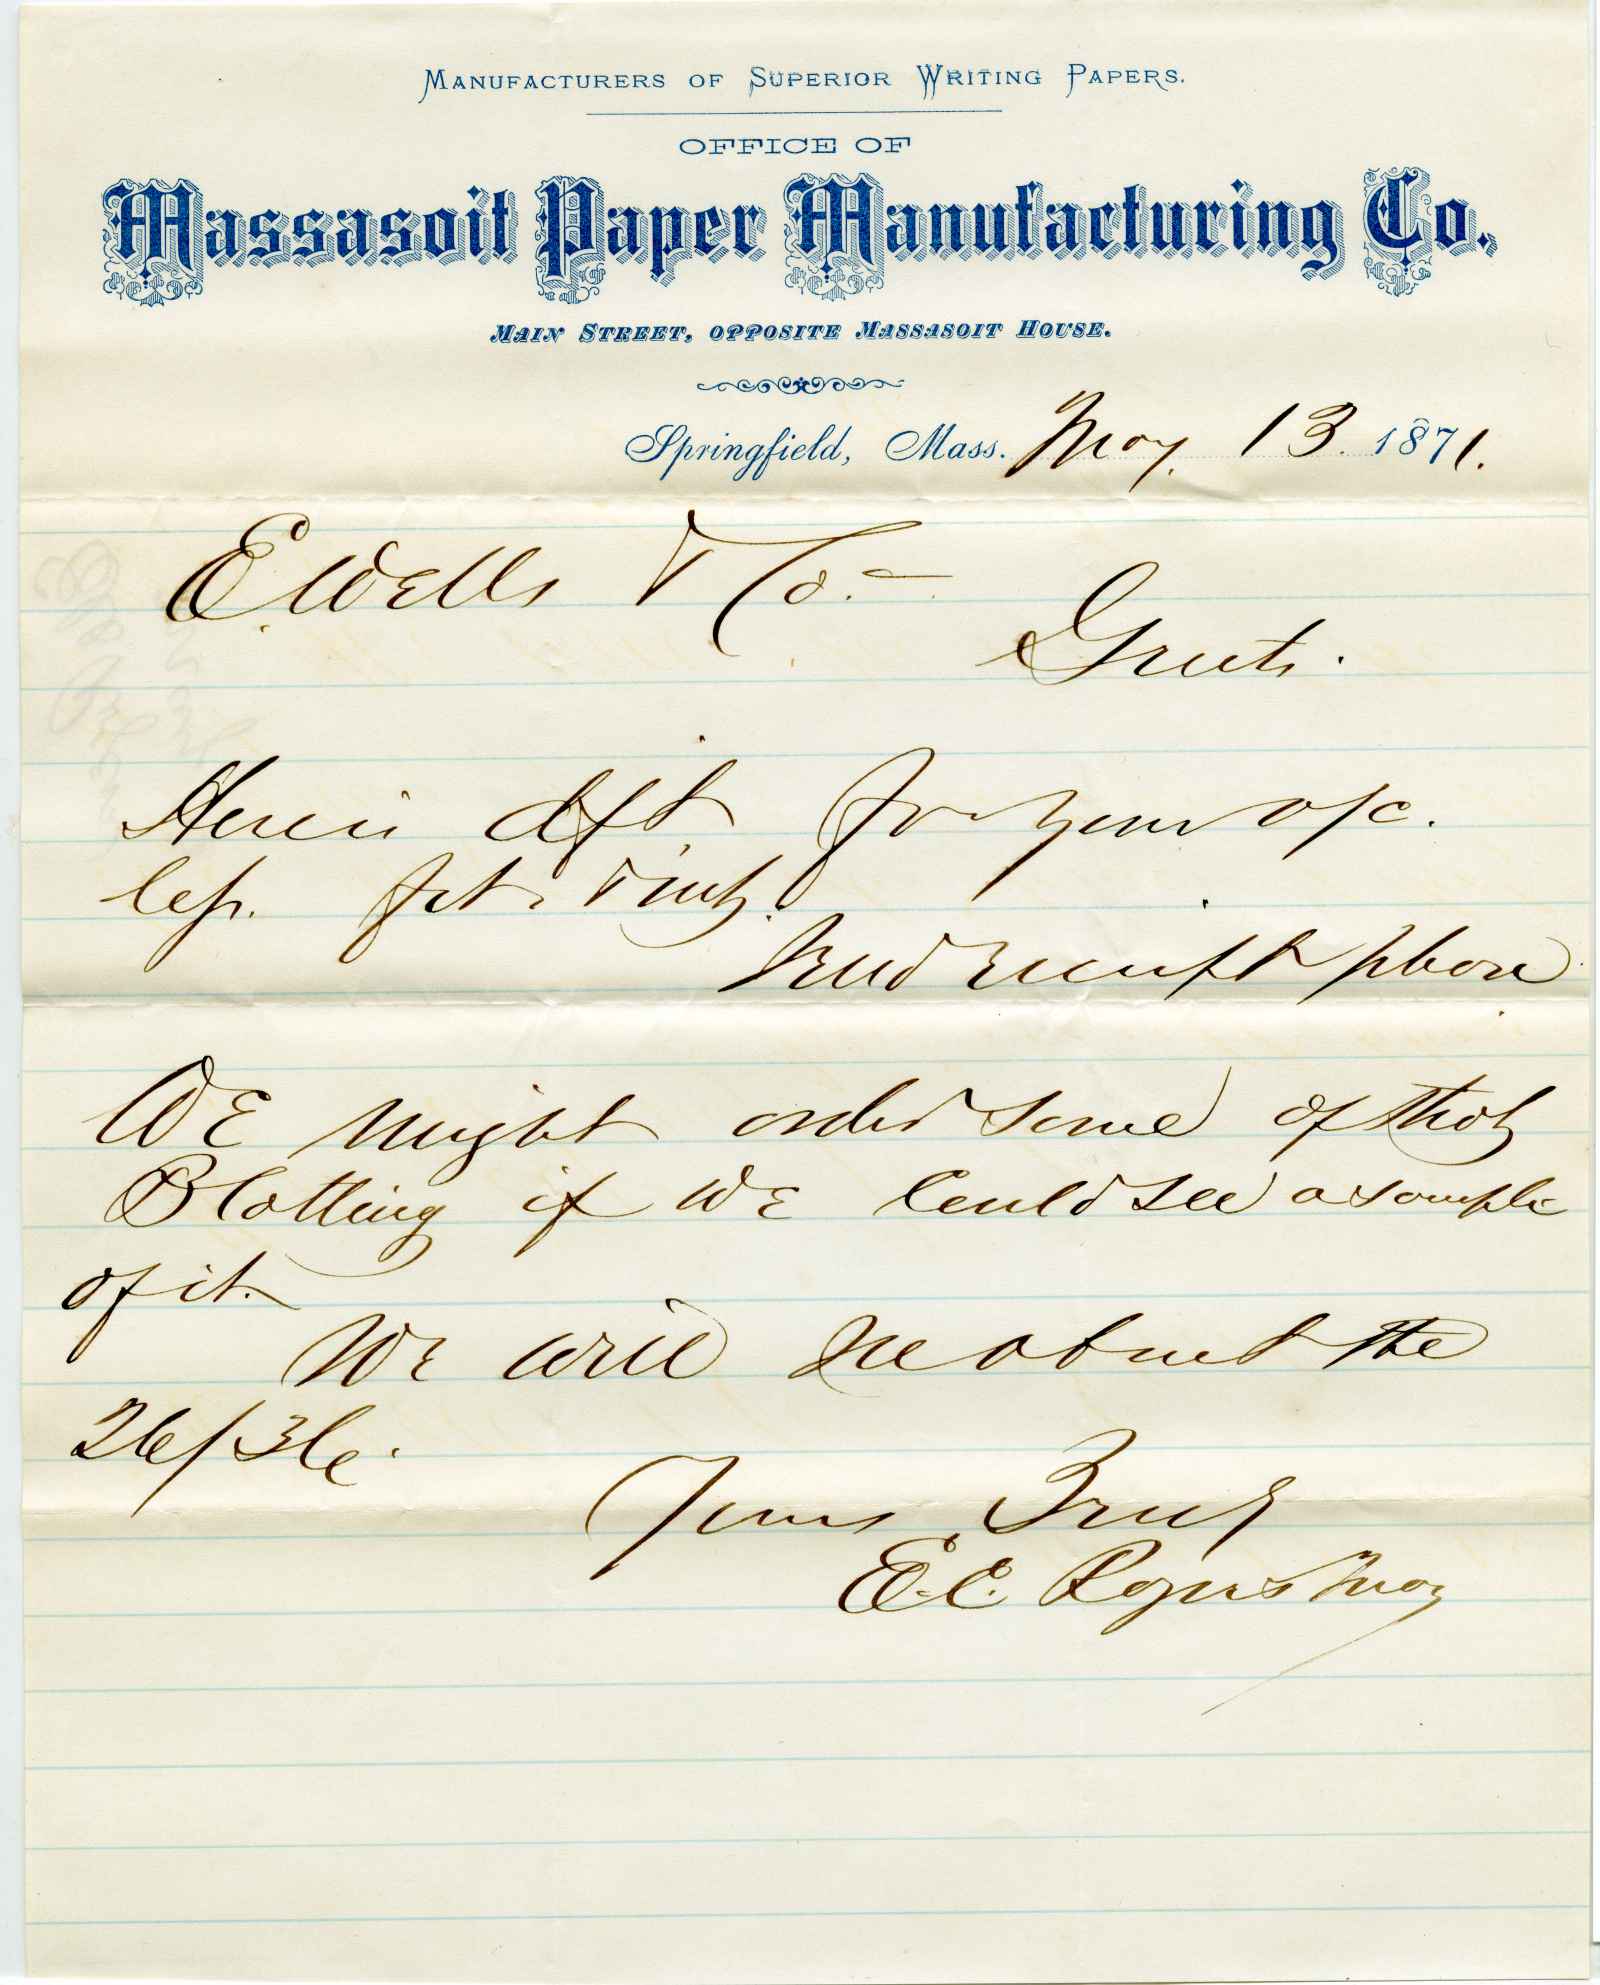 MANUFACTURERS OF SUPERIOR WRITING PAPERS.
OFFICE OF
Massasoit Paper Manufacturing Co.
MAIN STREET, OPPOSITE MASSASOIT HOUSE.
Springfield, Mass. May. 13. 1871.
E. Wells & Co.
Gents.
Herein dft for your a/c.
less frt &
Send receipt please
We might order some of that
Blotting if we could see a sample
of it.
We will about the
26/36.
Yours Truly
E. C. Rogers